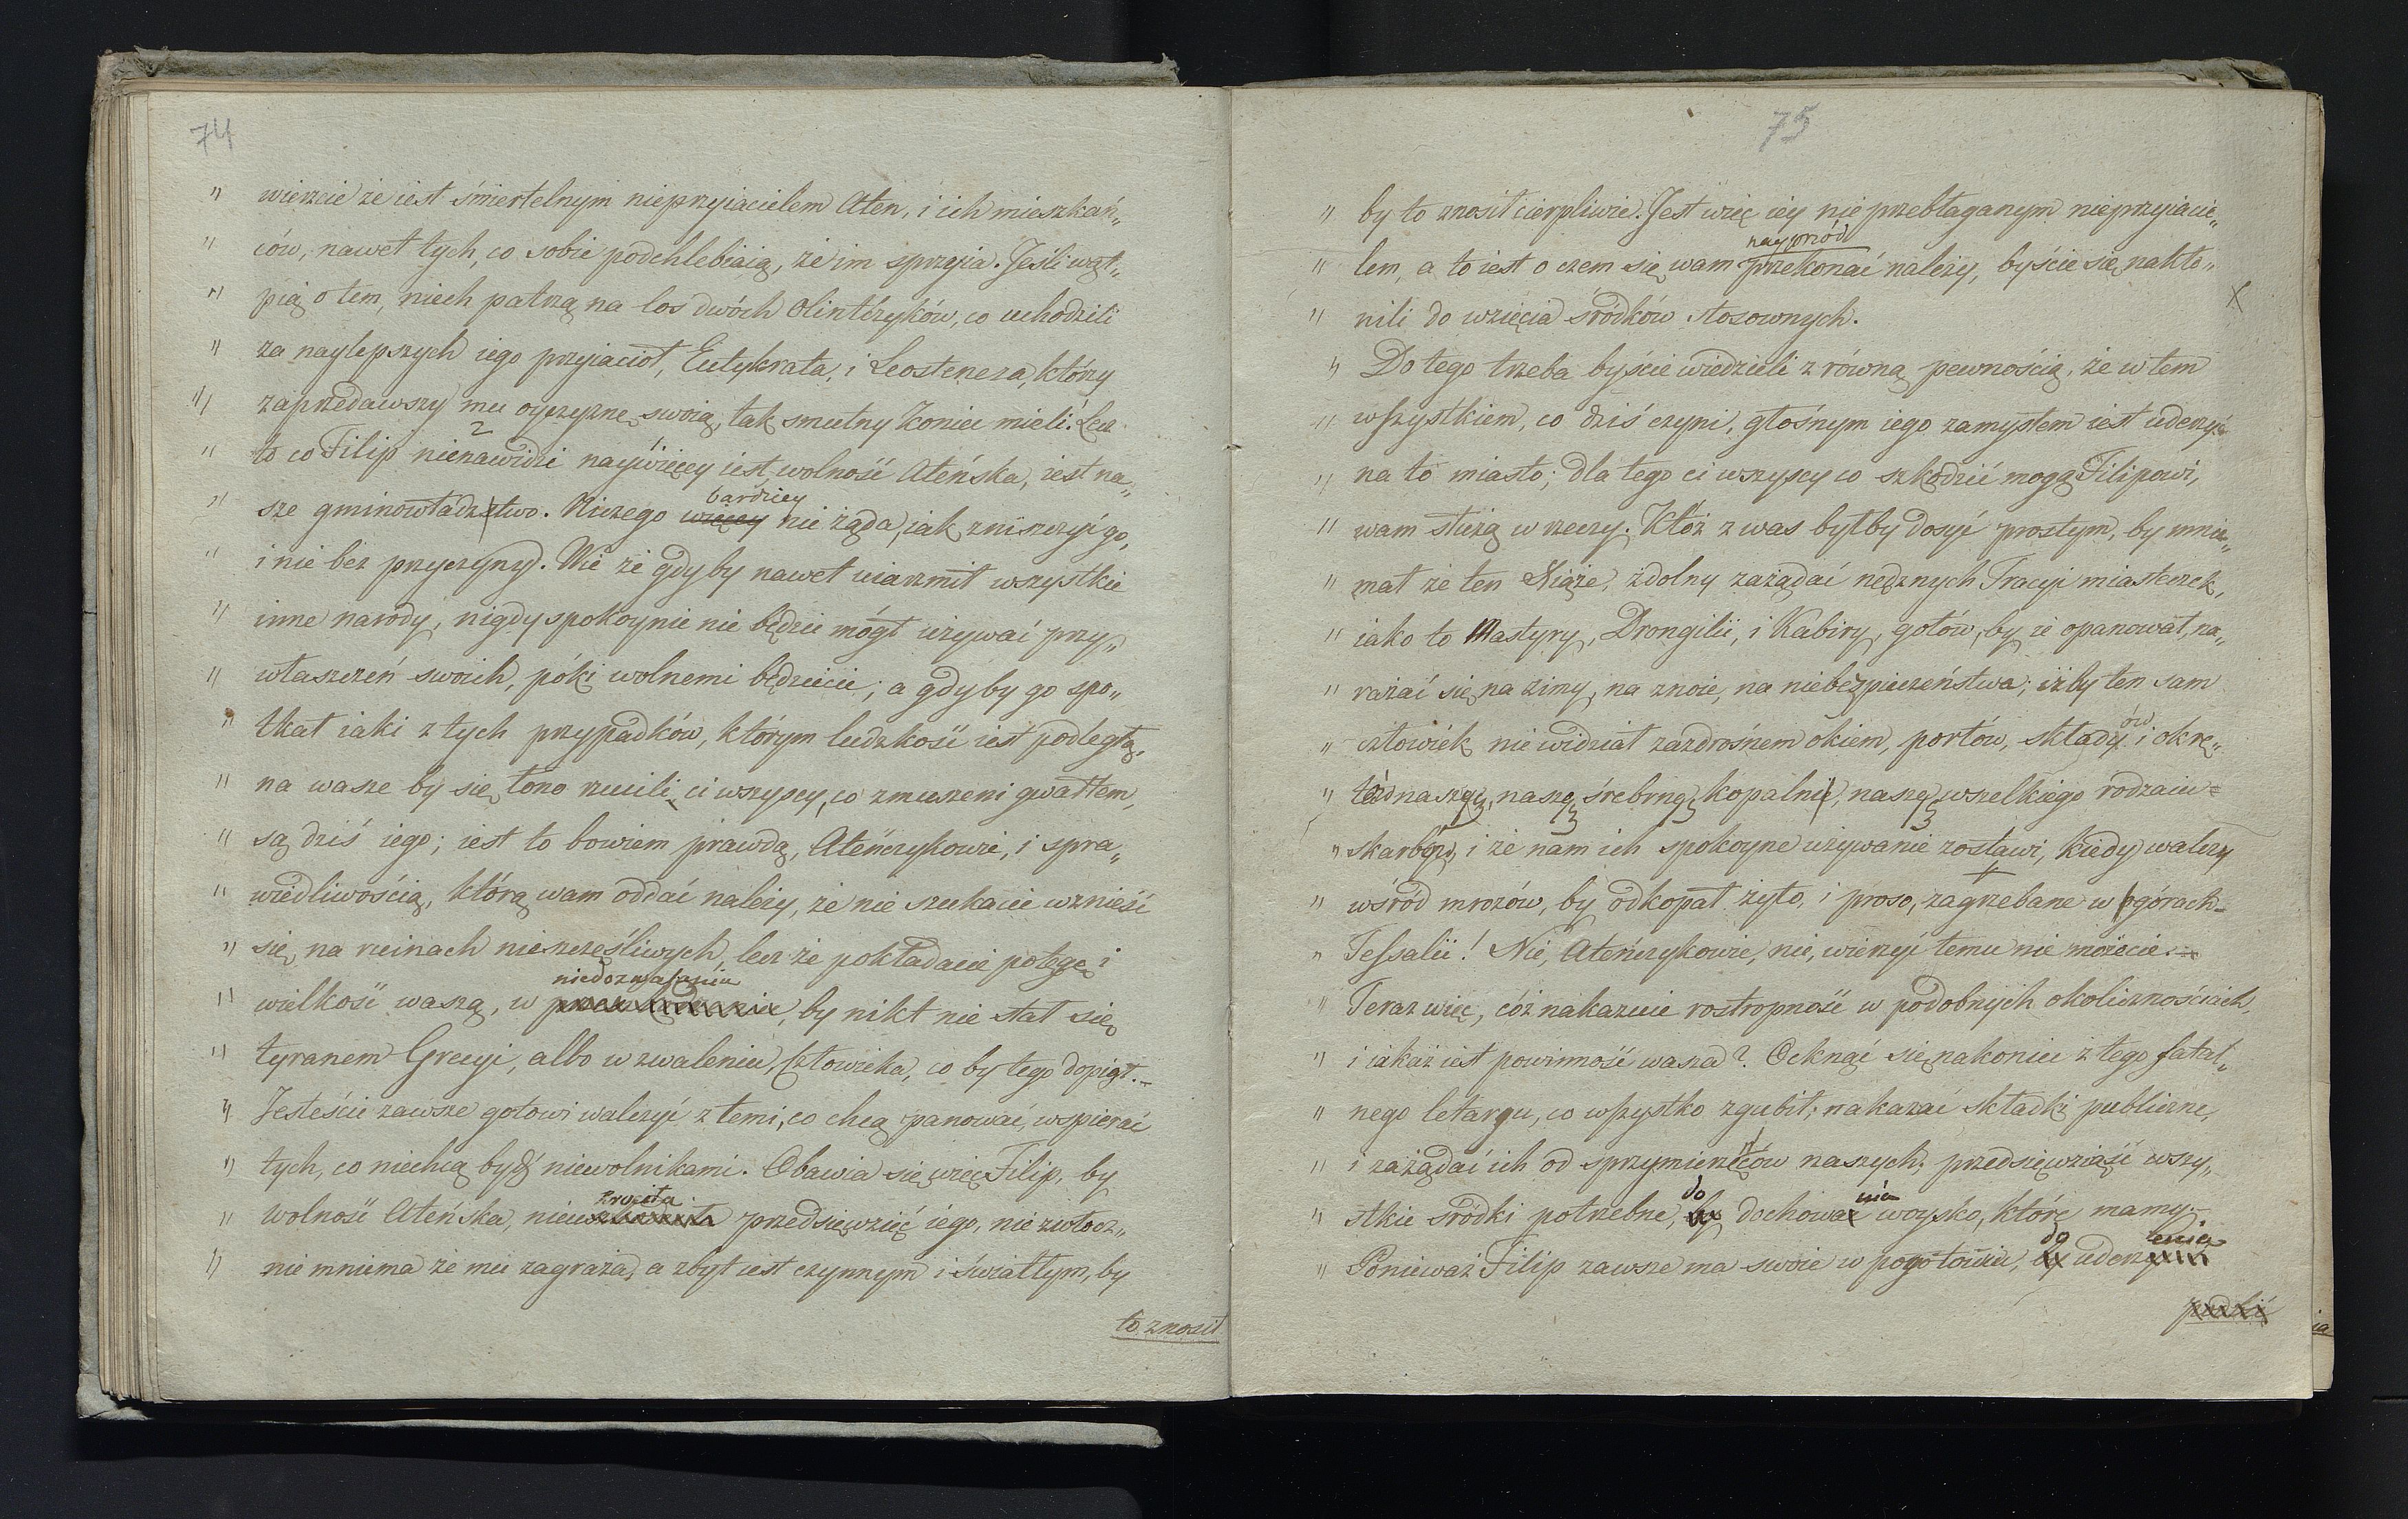 74
" wierzcie że iest śmiertelnym nieprzyiacielem Aten, i ich mieszkań„
" ców, nawet tych, co sobie podchlebiaią, że im sprzyia. Jeśli wąt„
" pią o tem, niech patrzą na los dwóch Olintczyków, co uchodzili
" za naylepszych iego przyiaciół, Eutykrata, i Leosteneza, którzy
" zaprzedawszy mu oyczyznę swoią, tak smutny koniec mieli. Lecz
2
" to co Filip nienawidzi naywięcey iest wolność Ateńska, iest na„
bardziey
" sze gminowładztwo. Niczego więcey nie żąda, iak zniszczyć go,
" i nie bez przyczyny. Wie że gdyby nawet uiarzmił wszystkie
" inne narody, nigdy spokoynie nie będzie mógł używać przy„
" właszczeń swoich, póki wolnemi będziecie; a gdyby go spo„
" tkał iaki z tych przypadków, którym ludzkość iest podległą,
" na wasze by się łono rzucili ci wszyscy, co zmuszeni gwałtem,
" są dziś iego; iest to bowiem prawdą, Ateńczykowie, i spra„
" wiedliwością, którą wam oddać należy, że nie szukacie wznieść
" się na ruinach nieszczęśliwych, lecz że pokładacie potęgę i
niedozwalaniu
" wielkość waszą, w , by nikt nie stał się
" tyranem Grecyi, albo w zwaleniu, Człowieka, co by tego dopiął.–
" Jesteście zawsze gotowi walczyć z temi, co chcą panować, wspierać
" tych, co niechcą bydź niewolnikami. Obawia się więc Filip, by
" wolność Ateńska, nie przedsięwzięć iego, nie zwłocz„
" nie mniema że mu zagraża, a zbyt iest czynnym i światłym, by
to znosił
75
" by to znosił cierpliwie. Jest więc iey nieprzebłaganym nieprzyiacie„
nayprzód
" lem, a to iest o czem się wam przekonać należy, byście się nakło„
" nili do wzięcia śródków stosownych.
" Do tego trzeba byście wiedzieli z równą pewnością, że w tem
" wszystkiem, co dziś czyni, głośnym iego zamysłem iest uderzyć
" na to miasto; dla tego ci wszyscy co szkodzić mogą Filipowi,
" wam służą w rzeczy. Któż z was byłby dosyć prostym, by mnie„
" mał że ten Xiąże, zdolny zażądać nędznych Tracyi miasteczek,
" iako to Mastyry, Drongilii, i Kabiry, gotów, by ie opanował, na„
" rażać się na zimy, na znoie, na niebezpieczeństwa; iżby ten sam
ów
" człowiek nie widział zazdrośnem okiem, portów, składy i okrę„
" tów naszych, naszę śrebrnę kopalnie, naszę wszelkiego rodzaiu
" skarby, i że nam ich spokoyne używanie zostawi, kiedy walczy
" wśród mrozów, by odkopał żyto, i proso, zagrzebane w górach
" Tessalii! Nie, Ateńczykowie, nie, wierzyć temu nie możecie.
" Teraz więc, cóż nakazuie rostropność w podobnych okolicznościach,
" i iakaż iest powinność wasza? Ocknąć się nakoniec z tego fatal„
" nego letargu, co wszystko zgubił; nakazać składki publiczne,
" i zażądać ich od sprzymierzeńców naszych; przedsięwziąść wszy„
do nia
" stkie śródki potrzebne, by dochować woysko, które mamy.–
do
" Ponieważ Filip zawsze ma swoie w pogotowiu, by uderz